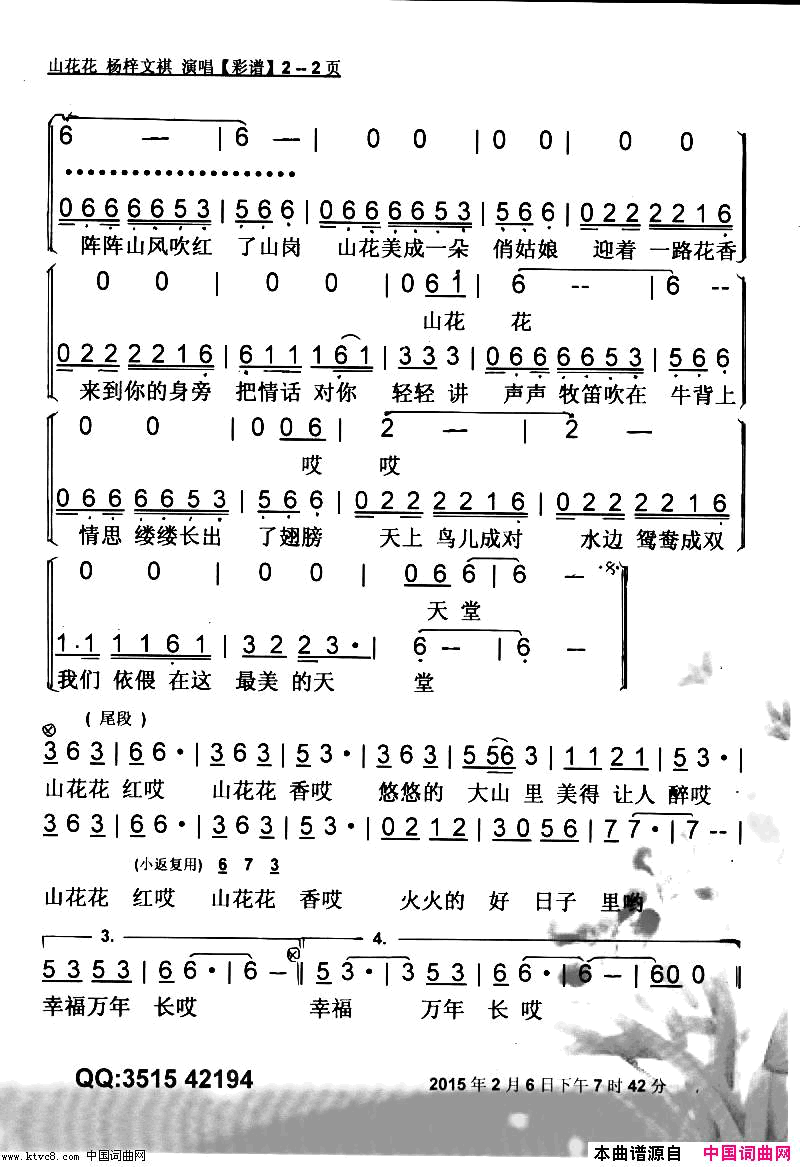 山花花 杨梓文祺 演唱【彩谱】2 -- 2 页
6 — | 6 — | 0 0 | 0 0 | 0 0 | 0 0
0 6 6 6 6 5 3 | 5 6 6 | 0 6 6 6 6 5 3 | 5 6 6 | 0 2 2 2 2 1 6
阵阵山风吹红 了山岗 山花美成一朵 俏姑娘 迎着 一路花香
0 0 | 0 0 | 0 0 | 0 6 1 | 6 -- | 6 --
0 2 2 2 2 1 6 | 6 1 1 1 6 1 | 3 3 3 | 0 6 6 6 6 5 3 | 5 6 6
山花 花
来到你的身旁 把情话 对你 轻轻 讲 声声 牧笛吹在 牛背上
0 0 | 0 0 6 | 2 — | 2 —
哎 哎
0 6 6 6 6 5 3 | 5 6 6 | 0 2 2 2 2 1 6 | 0 2 2 2 2 1 6
情思 缕缕长出 了翅膀 天上 鸟儿成对 水边 鸳鸯成双
0 0 | 0 0 | 0 6 6 | 6 —
天 堂
1 . 1 1 1 6 1 | 3 2 2 3 • | 6 -- | 6 --
我们 依偎 在这 最美 的天 堂
( 尾段 )
3 6 3 | 6 6 • | 3 6 3 | 5 3 • | 3 6 3 | 5 5 6 3 | 1 1 2 1 | 5 3 • |
山花花 红哎 山花花 香哎 悠悠的 大山 里 美得 让人 醉哎
3 6 3 | 6 6 • | 3 6 3 | 5 3 • | 0 2 1 2 | 3 0 5 6 | 7 7 • | 7 -- |
(小返复用) 6 7 3
山花花 红哎 山花花 香哎 火火的 好 日子 里哟
3. 4.
5 3 5 3 | 6 6 • | 6 — ‖ 5 3 • | 3 5 3 | 6 6 • | 6 — | 6 0 0 ‖
幸福万年 长哎 幸福 万年 长 哎
QQ:3515 42194
2015 年 2 月 6 日下午 7 时 42 分
www.ktvc8.com 中国词曲网
本曲谱源自 中国词曲网